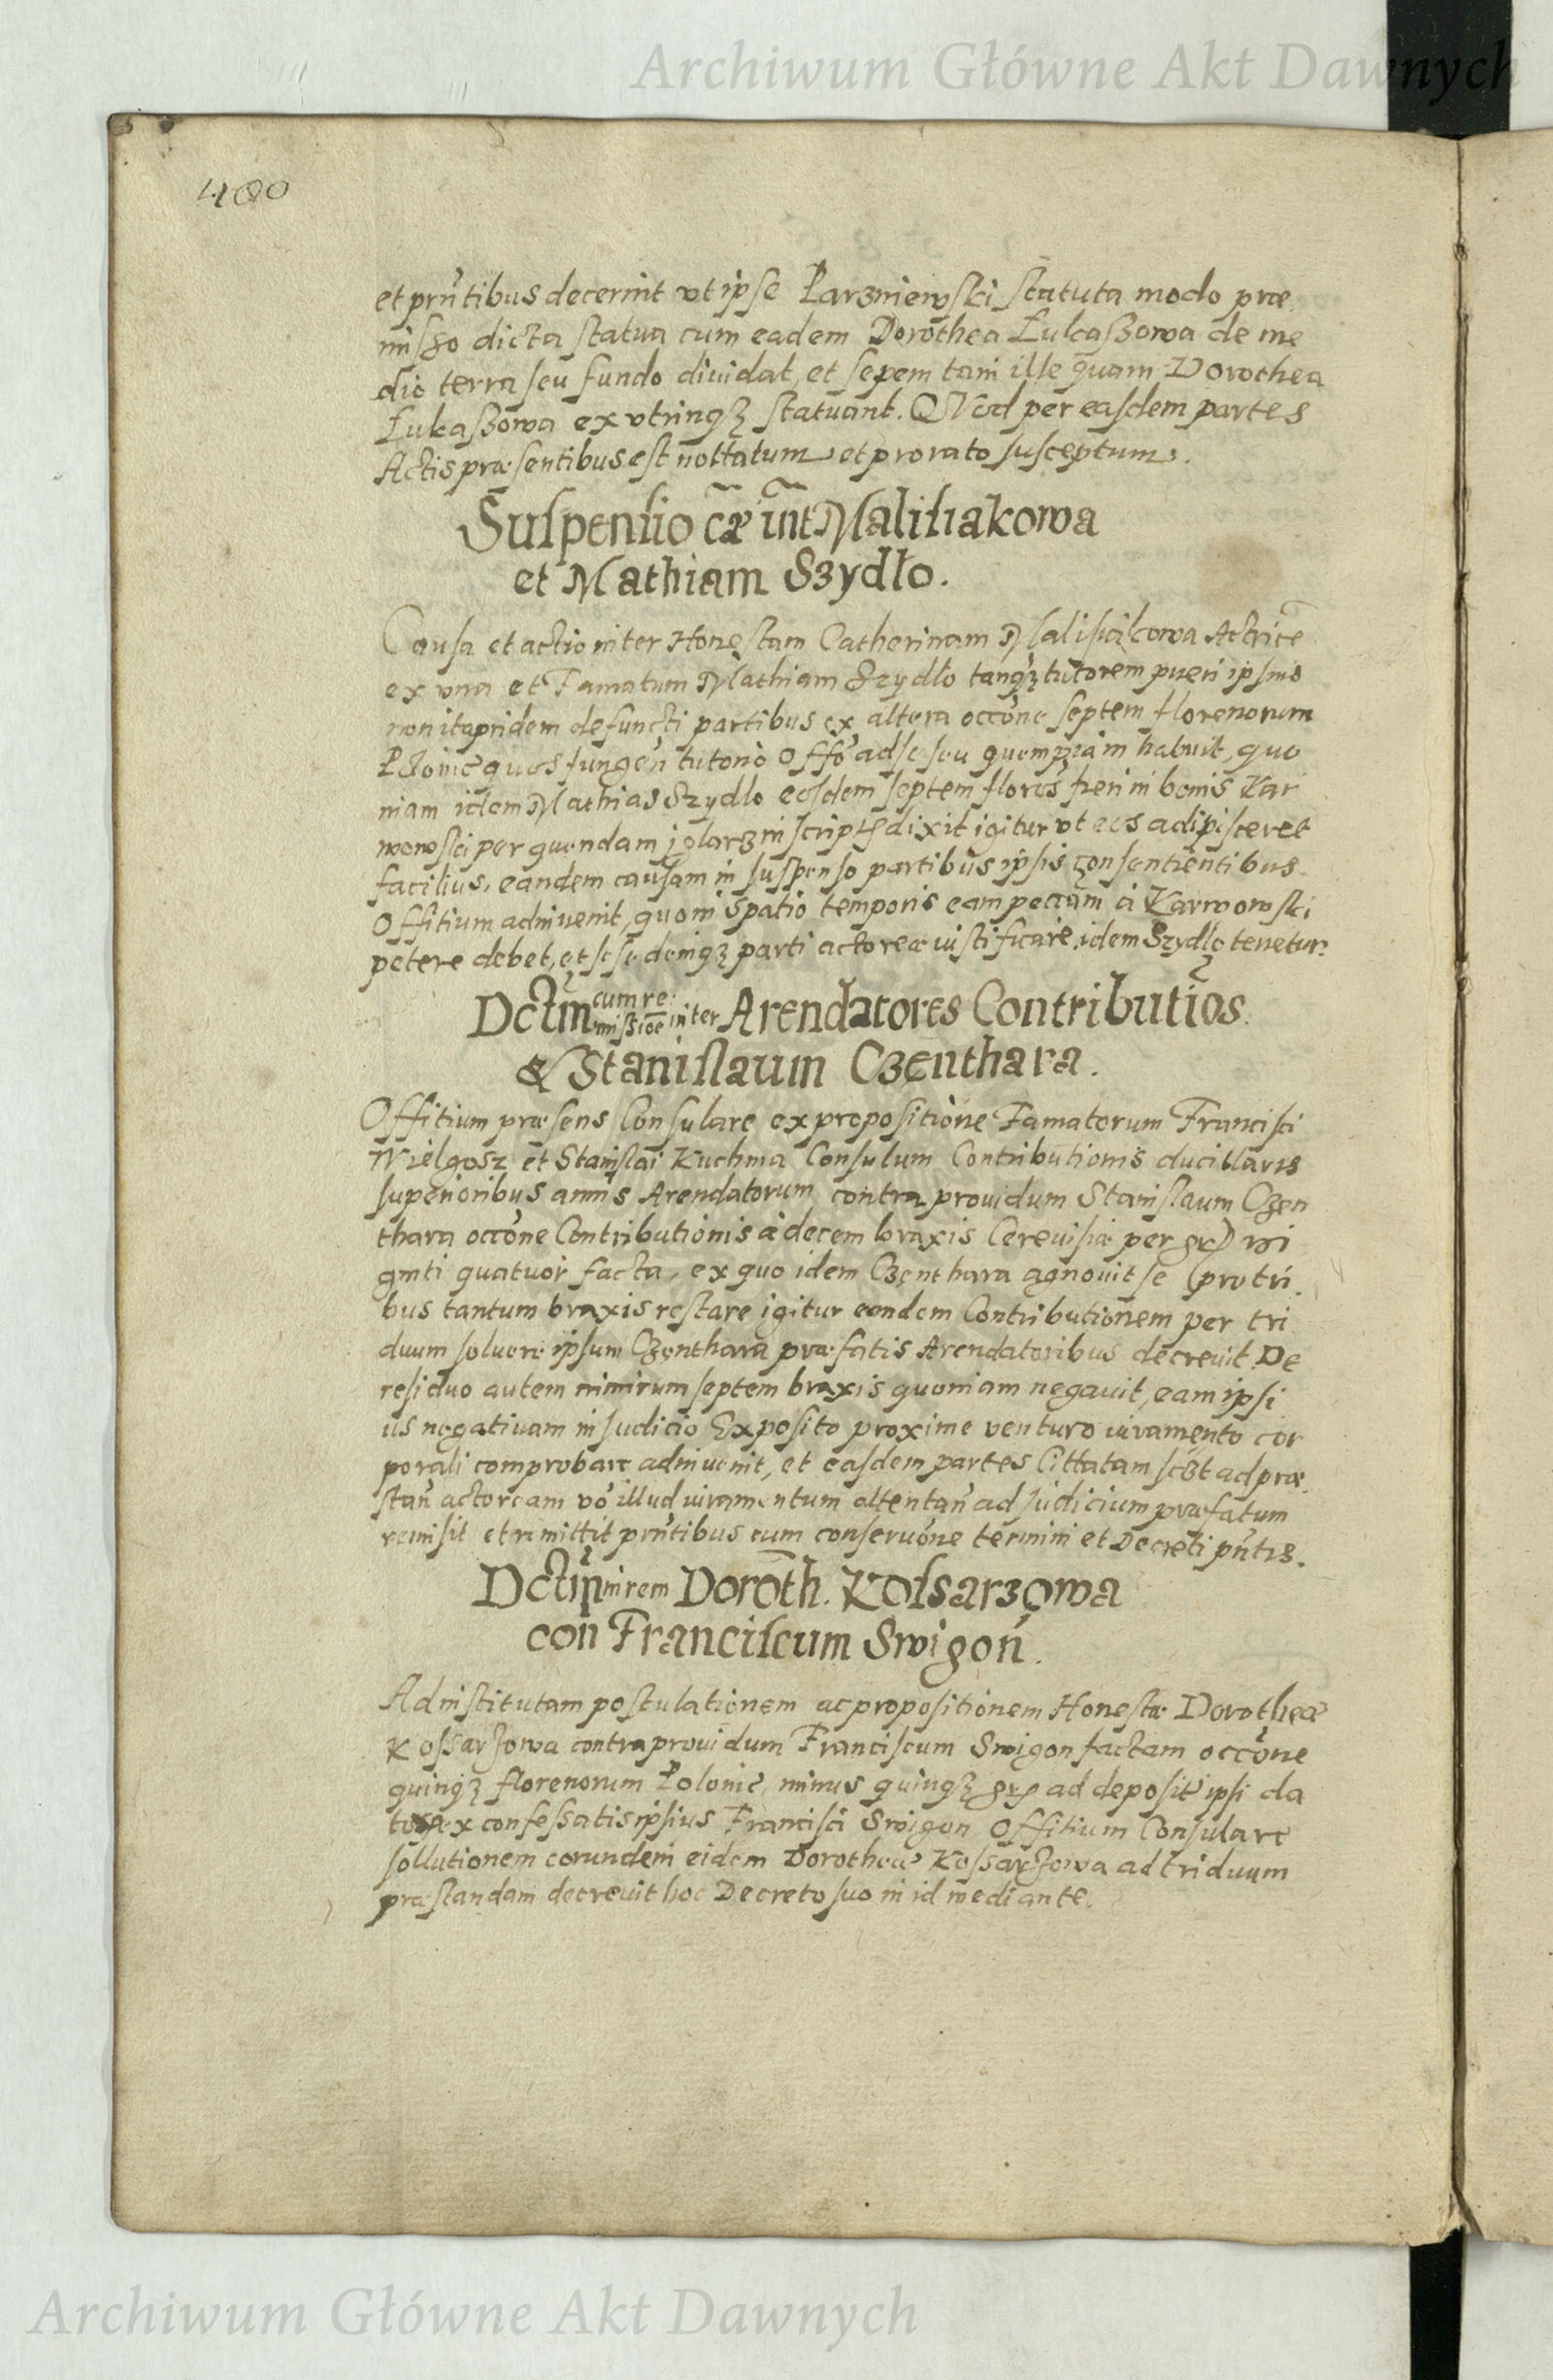 Archiwum Główne Akt Dawnych
480
et pñtibus decernit vt ipse Parzniewski statuta modo præ
misso dicta statua cum eadem Dorothea Łukaszowa de me
dio terra seu fundo diuidat, et sepem tam ille quam Dorothea
Łukaszowa ex vtrinqȝ statuant. QVod per easdem partes
Actis præsentibus est nottatum et pro rato susceptum.
Suspensio cæ int Malisiakowa
et Mathiam Szydło.
Causa et actio inter Honestam Catherinam Malisiakowa Actrice
ex vna et Famatum Mathiam Szydło tanqȝ tutorem pueri ipsius
non ita pridem defuncti partibus ex altera occõne septem florenorum
quos tutorio Offo ad se seu quempiam habuit, quo
niam idem Mathias Szydlo eosdem septem in bonis Kar
wowski per quendam dixit igitur vt eos adipisceret
facilius, eandem causam in suspenso partibus ipsis consentientibus
Offitium adinuenit, quoin spatio temporis eam a Karwowski
petere debet, et sese deinqȝ parti actoreæ iustificare idem Szydlo tenetur.
Dctm cum re
missioe inter Arendatores Contributios
& Stanislaum Czenthara.
Offitium præsens Consulare ex propositione Famatorum Francisci
Wielgosz et Stanislai Kuchma Consulum Contributionis ducillaris
superioribus annis Arendatorum contra prouidum Stanislaum Czen
thara occõne Contributionis a decem braxis Cereuisiæ per gr) vi
ginti quatuor facta, ex quo idem Czenthara agnouit se pro tri
bus tantum braxis restare igitur eandem Contributionem per tri
duum soluere ipsum Czenthara præfatis Arendatoribus decreuit. De
residuo autem nimirum septem braxis quoniam negauit, eam ipsi
us negatiuam in Iudicio Exposito proxime venturo iuramento cor
porali comprobare adinuenit, et easdem partes Cittatam ad præ
stañ actoream võ illud iuramentum attentañ ad Iudicium præfatum
remisit et remittit pñtibus cum conseruõne termini et Decreti pñtis.
Dctm in rem Doroth. Kossarzowa
con Franciscum Swigoń.
Ad institutam postulationem ac propositionem Honestæ Dorotheæ
Kossarzowa contra prouidum Franciscum Swigon factam occõne
quinqȝ florenorum Polonic minus quinqȝ ad deposit ipsi da
ex confessatis ipsius Francisci Swigon Offitium Consulare
sollutionem eorundem eidem Dorotheæ Kossarzowa ad triduum
præstandam decreuit hoc Decreto suo in id mediante.
Archiwum Główne Akt Dawnych